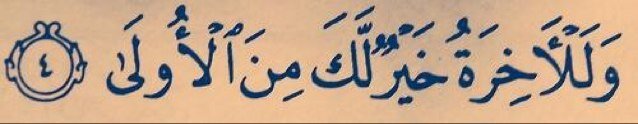 وَلَلْأَخِرَةُ خَيْرٌ لَّكَ مِنَ ٱلْأُولَىٰ ٤